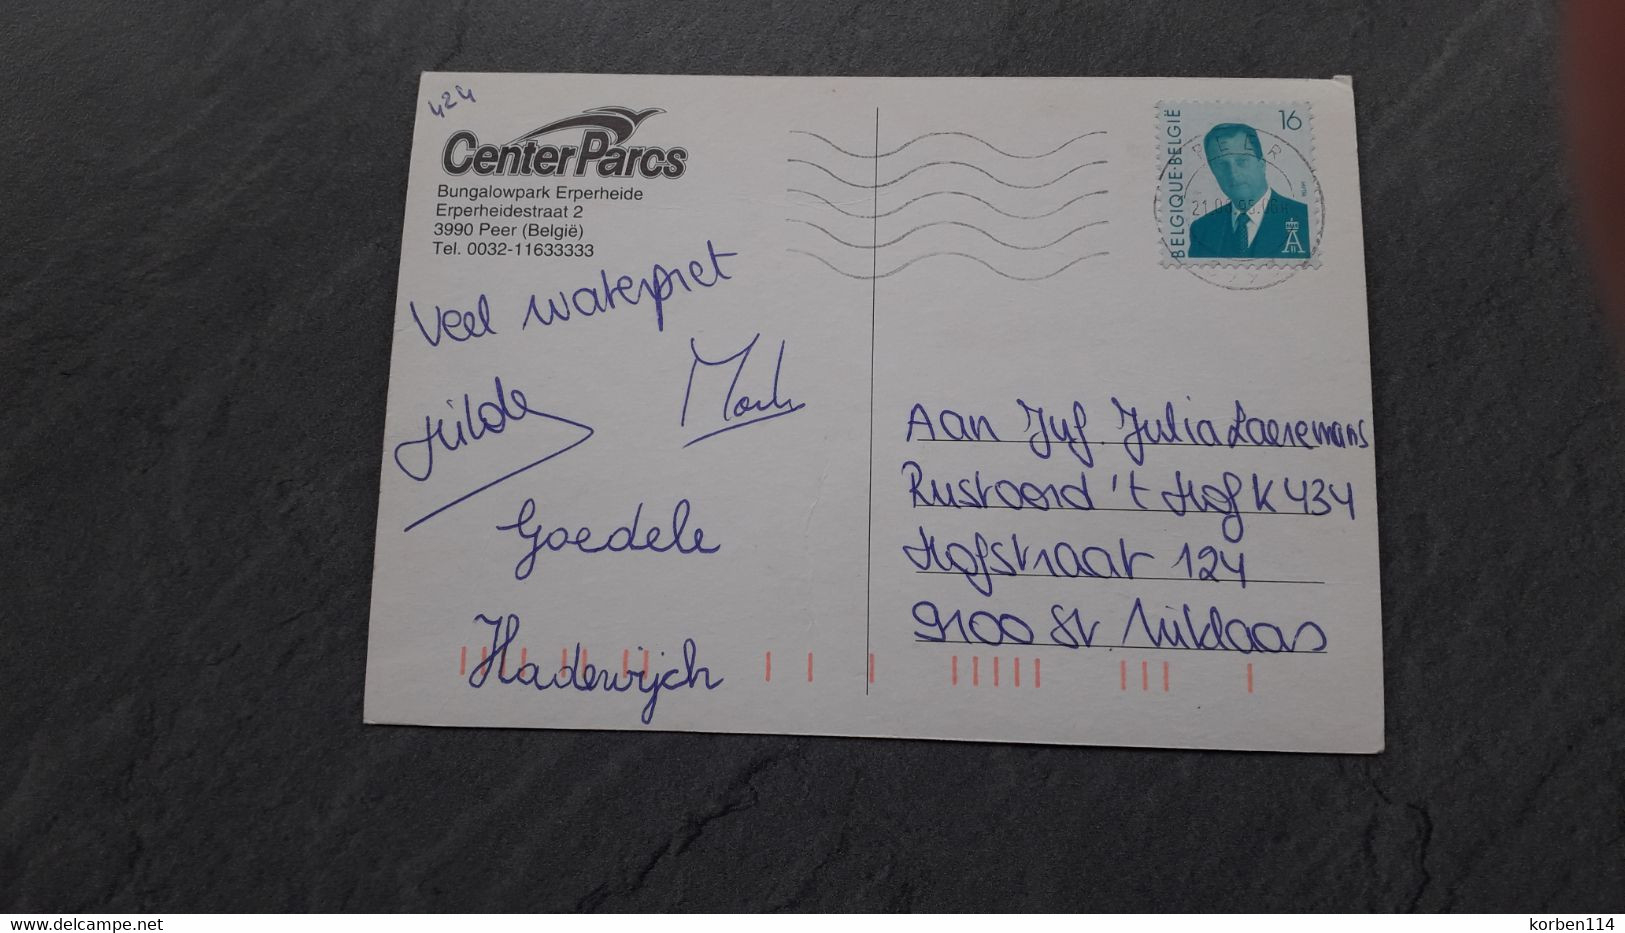 424
Center Parcs
Bungalowpark Erperheide
Erperheidestraat 2
3990 Peer (België)
Tel. 0032-11633333
Veel waterpret
Hilde
Goedele
Hadewijch
BELGIQUE-BELGIË
16
PEER
21.08.95.06H
Aan Juf. Julia Laeremans
Rustoord 't Hof K 434
Hofstraat 124
9100 St. Niklaas
www.delcampe.net
korben114